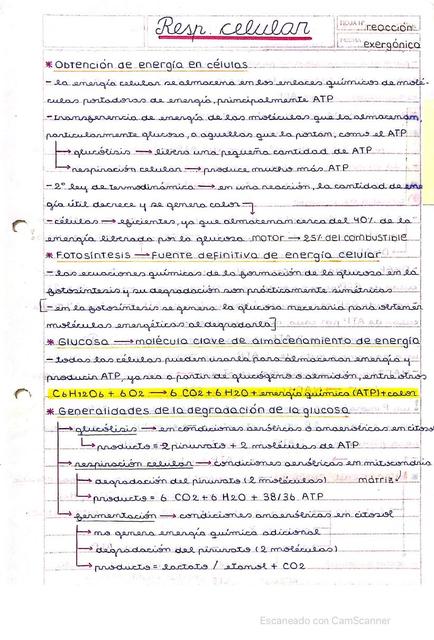 Resp. celular
HOJA Nº reacción
FECHA exergónica
* Obtención de energía en células
- la energía celular se almacena en los enlaces químicos de molé-
culas portadoras de energía, principalmente ATP
- transferencia de energía de las moléculas que la almacenan,
particularmente glucosa, a aquellas que la portan, como el ATP
→ glucólisis → libera una pequeña cantidad de ATP
→ respiración celular → produce mucho más ATP
- 2º ley de termodinámica → en una reacción, la cantidad de ener
gía útil decrece y se genera calor
- células → eficientes, ya que almacenan cerca del 40% de la
energía liberada por la glucosa MOTOR → 25% del combustible
* Fotosíntesis → Fuente definitiva de energía celular
- las ecuaciones químicas de la formación de la glucosa en la
fotosíntesis y su degradación son prácticamente simétricas
[- en la fotosíntesis se genera la glucosa necesaria para obtener
moléculas energéticas al degradarla]
* Glucosa → molécula clave de almacenamiento de energía
- todas las células pueden usarla para almacenar energía y
producir ATP, ya sea a partir de glucógeno o almidón, entre otros
C6H12O6 + 6 O2 → 6 CO2 + 6 H2O + energía química (ATP) + calor
* Generalidades de la degradación de la glucosa
→ glucólisis → en condiciones aeróbicas o anaeróbicas en citosol
→ producto = 2 piruvato + 2 moléculas de ATP
→ respiración celular → condiciones aeróbicas en mitocondria
→ degradación del piruvato (2 moléculas) matriz
→ producto = 6 CO2 + 6 H2O + 38/36 ATP
→ fermentación → condiciones anaeróbicas en citosol
→ no genera energía química adicional
→ degradación del piruvato (2 moléculas)
→ producto = lactato / etanol + CO2
Escaneado con CamScanner